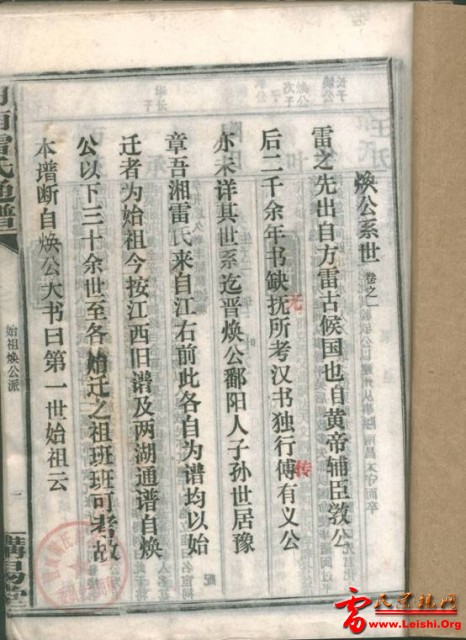 焕公系世 卷之一
雷之先出自方雷古候国也自黄帝辅臣教公
后二千余年书缺抚所考汉书独行傅有义公
亦未详其世系迄晋焕公鄱阳人子孙世居豫
章吾湘雷氏来自江右前此各自为谱均以始
迁者为始祖今按江西旧谱及两湖通谱自焕
公以下三十余世至各始迁之祖班班可考故
本谱断自焕公大书曰第一世始祖云
雷氏通谱
始祖焕公派
无
传
www.Leishi.Org